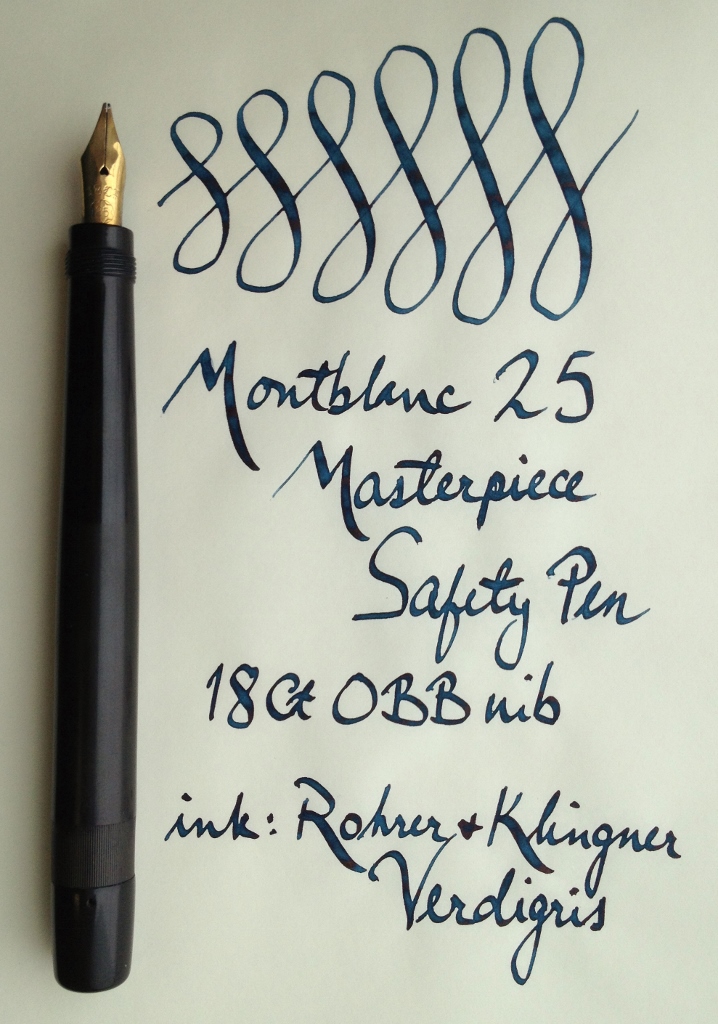 Montblanc 25
Masterpiece
Safety Pen
18Ct OBB nib
ink: Rohrer + Klingner
Verdigris